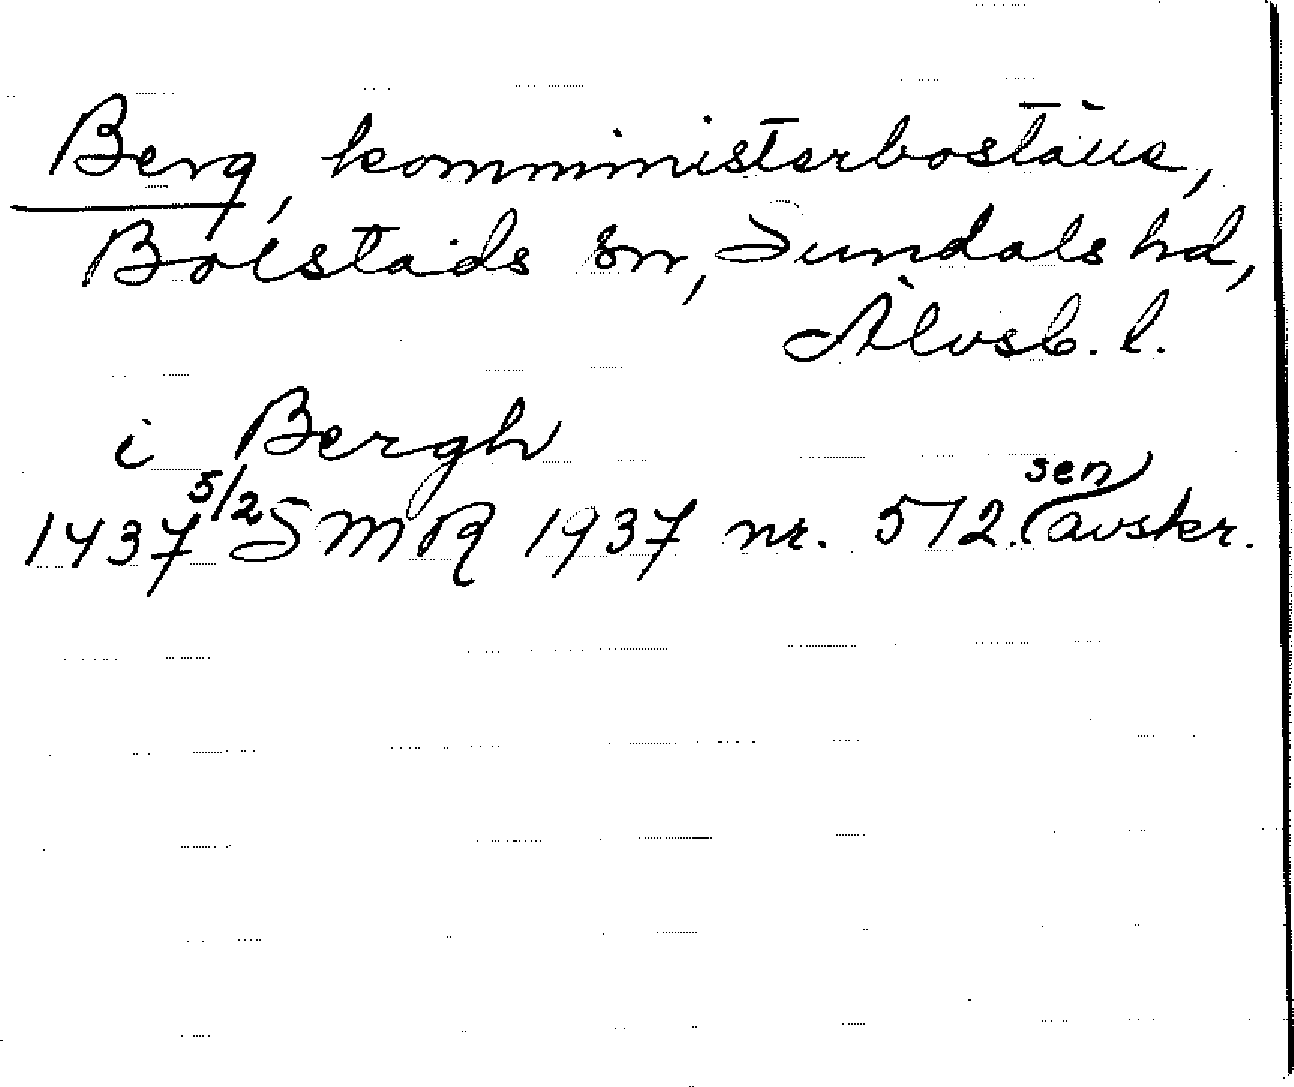 Berg, komministerboställe,
Bolstads sn, Sundals hd,
Älvsb. l.
i Bergh
1437 5/2 SMR 1937 nr. 572. (sen avskr.